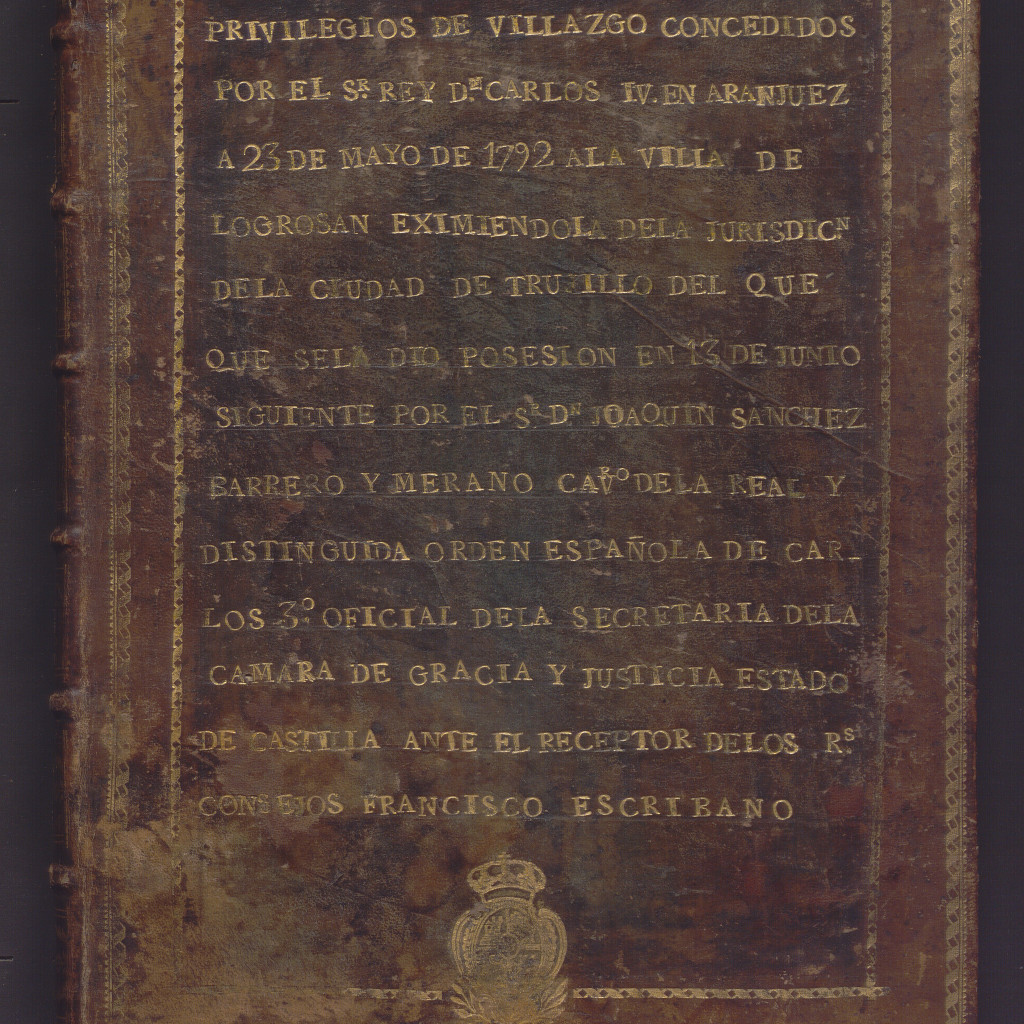 PRIVILEGIOS DE VILLAZGO CONCEDIDOS
POR EL S.R REY D.N CARLOS IV. EN ARANJUEZ
A 23 DE MAYO DE 1792 A LA VILLA DE
LOGROSAN EXIMIENDOLA DELA JURISDIC.N
DE LA CIUDAD DE TRUJILLO DEL QUE
QUE SELA DIO POSESION EN 13 DE JUNIO
SIGUIENTE POR EL S.R D.N JOAQUIN SANCHEZ
BARRERO Y MERANO CAV.RO DE LA REAL Y
DISTINGUIDA ORDEN ESPAÑOLA DE CAR-
LOS 3.º OFICIAL DELA SECRETARIA DELA
CAMARA DE GRACIA Y JUSTICIA ESTADO
DE CASTILLA ANTE EL RECEPTOR DELOS R.S
CONSEJOS FRANCISCO ESCRIBANO